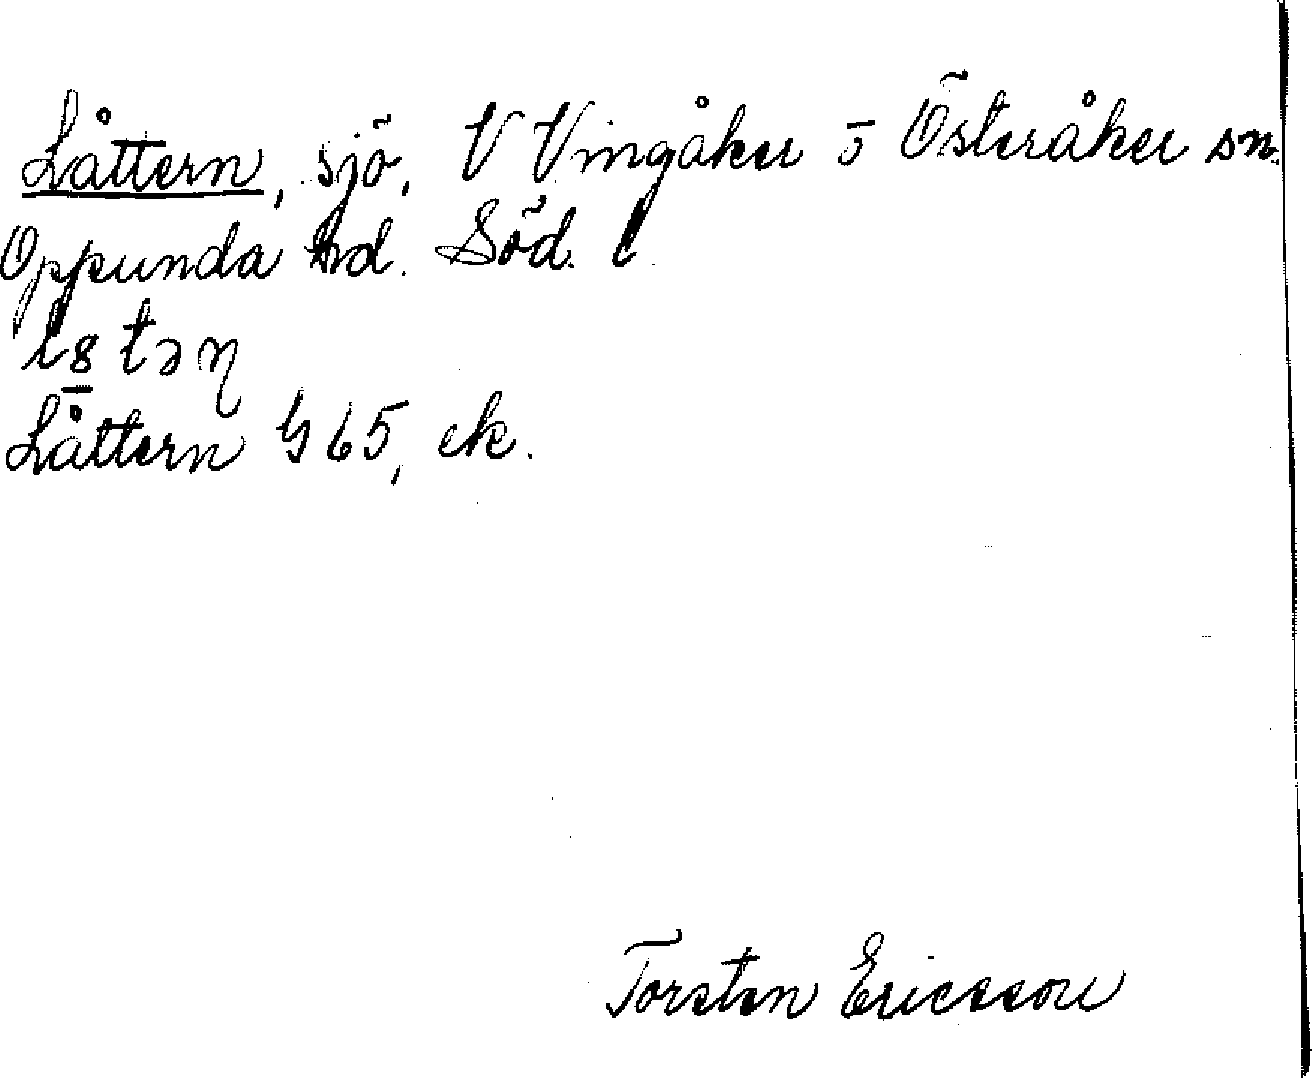 Låttern, sjö, V Vingåker o Österåker sn.
Oppunda hd. Söd. l
l8tən
Låttern G 65, ek.
Torsten Ericsson